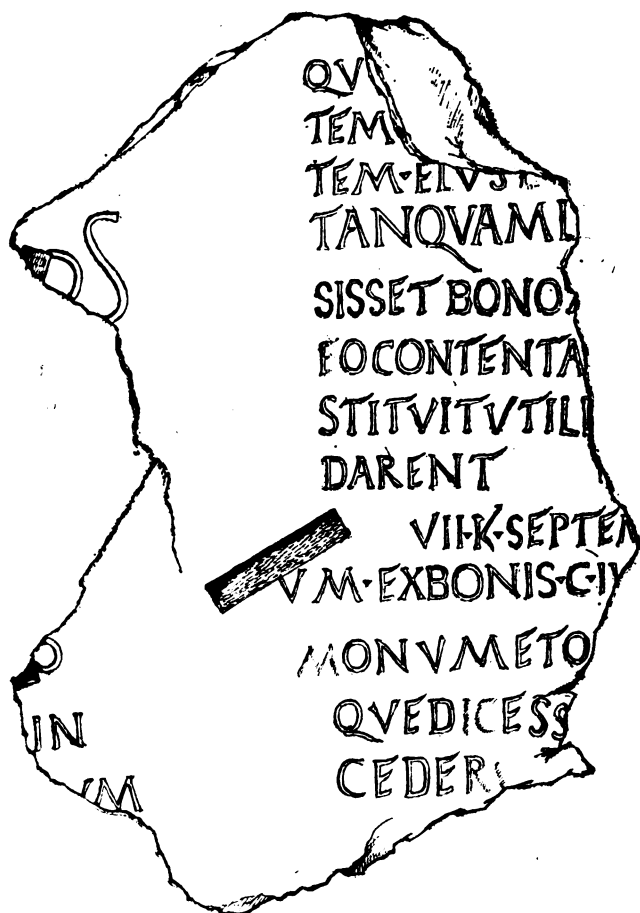 QV
TEM
TEM·EIVS
S TANQVAM
SISSET BONO
EOCONTENTA
STITVITVTILI
DARENT
VII·K·SEPTEM
VM·EXBONIS·C·IV
O MONVMETO
IN QVEDICESS
VM CEDER